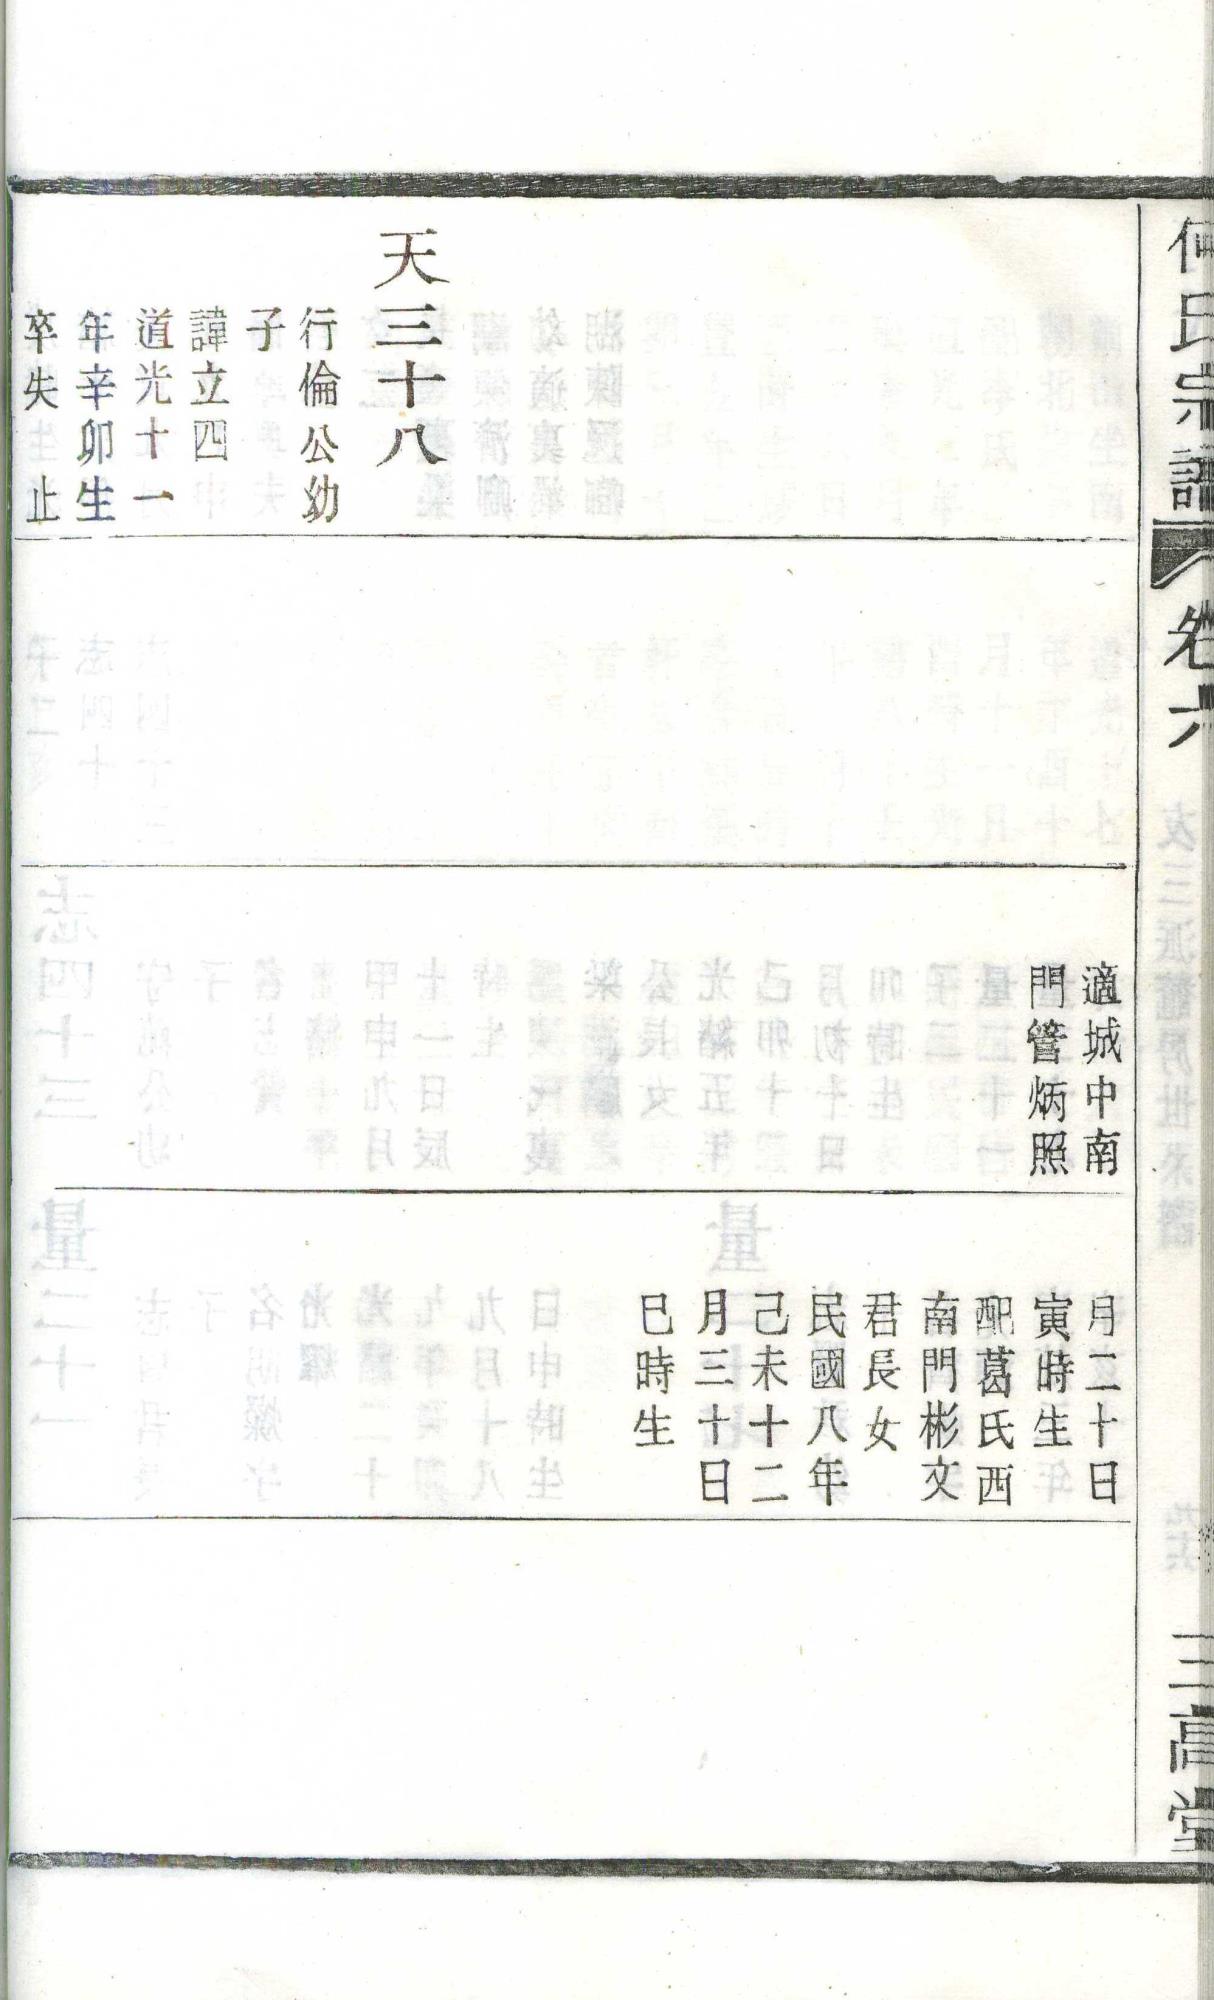 何氏宗譜
卷六
三高堂
天三十八
行倫公幼
子
諱立四
道光十一
年辛卯生
卒失止
適城中南
門管炳照
月二十日
寅時生
配葛氏西
南門彬文
君長女
民國八年
己未十二
月三十日
巳時生